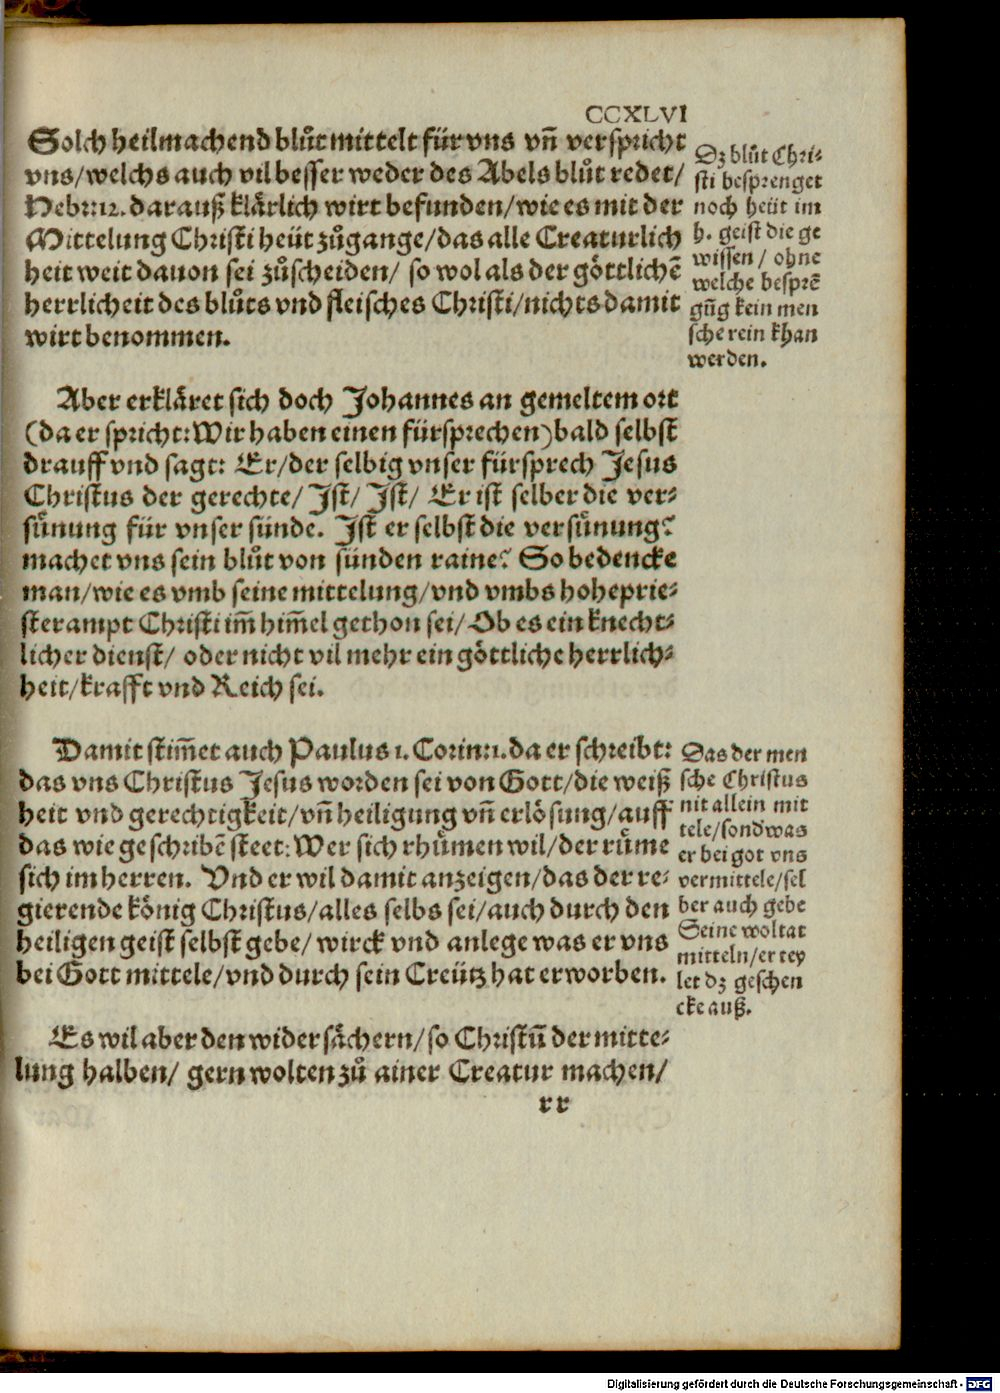 CCXLVI
Solch heilmachend blůt mittelt für vns vñ verspricht
vns/welchs auch vil besser weder des Abels blůt redet/
Hebr:12. darauß klärlich wirt befunden/wie es mit der
Mittelung Christi heüt zůgange/das alle Creaturlich
heit weit dauon sei zůscheiden/ so wol als der göttlichē
herrlicheit des blůts vnd fleisches Christi/nichts damit
wirt benommen.
Dz blůt Chri⸗
sti besprenget
noch heüt im
h. geist die ge
wissen / ohne
welche besprē
gūg kein men
sche rein khan
werden.
Aber erkläret sich doch Johannes an gemeltem ort
(da er spricht: Wir haben einen fürsprechen) bald selbst
drauff vnd sagt: Er/der selbig vnser fürsprech Jesus
Christus der gerechte/ Jst/ Jst/ Er ist selber die ver⸗
sůnung für vnser sünde. Jst er selbst die versůnung?
machet vns sein blůt von sünden raine? So bedencke
man/wie es vmb seine mittelung/vnd vmbs hoheprie⸗
sterampt Christi im̄ him̄el gethon sei/Ob es ein knecht⸗
licher dienst/ oder nicht vil mehr ein göttliche herrlich⸗
heit/krafft vnd Reich sei.
Damit stim̄et auch Paulus 1. Corin:1. da er schreibt:
das vns Christus Jesus worden sei von Gott/die weiß
heit vnd gerechtigkeit/vñ heiligung vñ erlösung/auff
das wie geschribē steet: Wer sich rhůmen wil/der růme
sich im herren. Vnd er wil damit anzeigen/das der re⸗
gierende könig Christus/alles selbs sei/auch durch den
heiligen geist selbst gebe/ wirck vnd anlege was er vns
bei Gott mittele/vnd durch sein Creütz hat erworben.
Das der men
sche Christus
nit allein mit
tele/sond was
er bei got vns
vermittele/sel
ber auch gebe
Seine woltat
mitteln/er tey
let dz geschen
cke auß.
Es wil aber den widersächern/so Christū der mitte⸗
lung halben/ gern wolten zů ainer Creatur machen/
rr
Digitalisierung gefördert durch die Deutsche Forschungsgemeinschaft - DFG